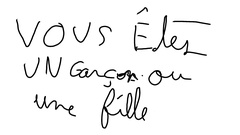 VOUS Êtes
UN Garçon ou
une fille